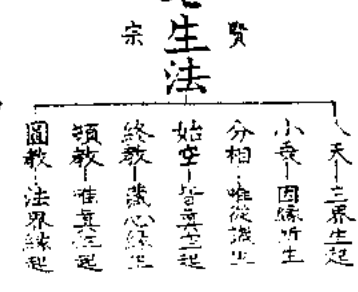 賢
宗
生法
人天—三界生起
小乘—因緣所生
分相—唯從識生
始空—皆眞空起
終教—識心緣生
頓教—唯眞起
圓教—法界緣起